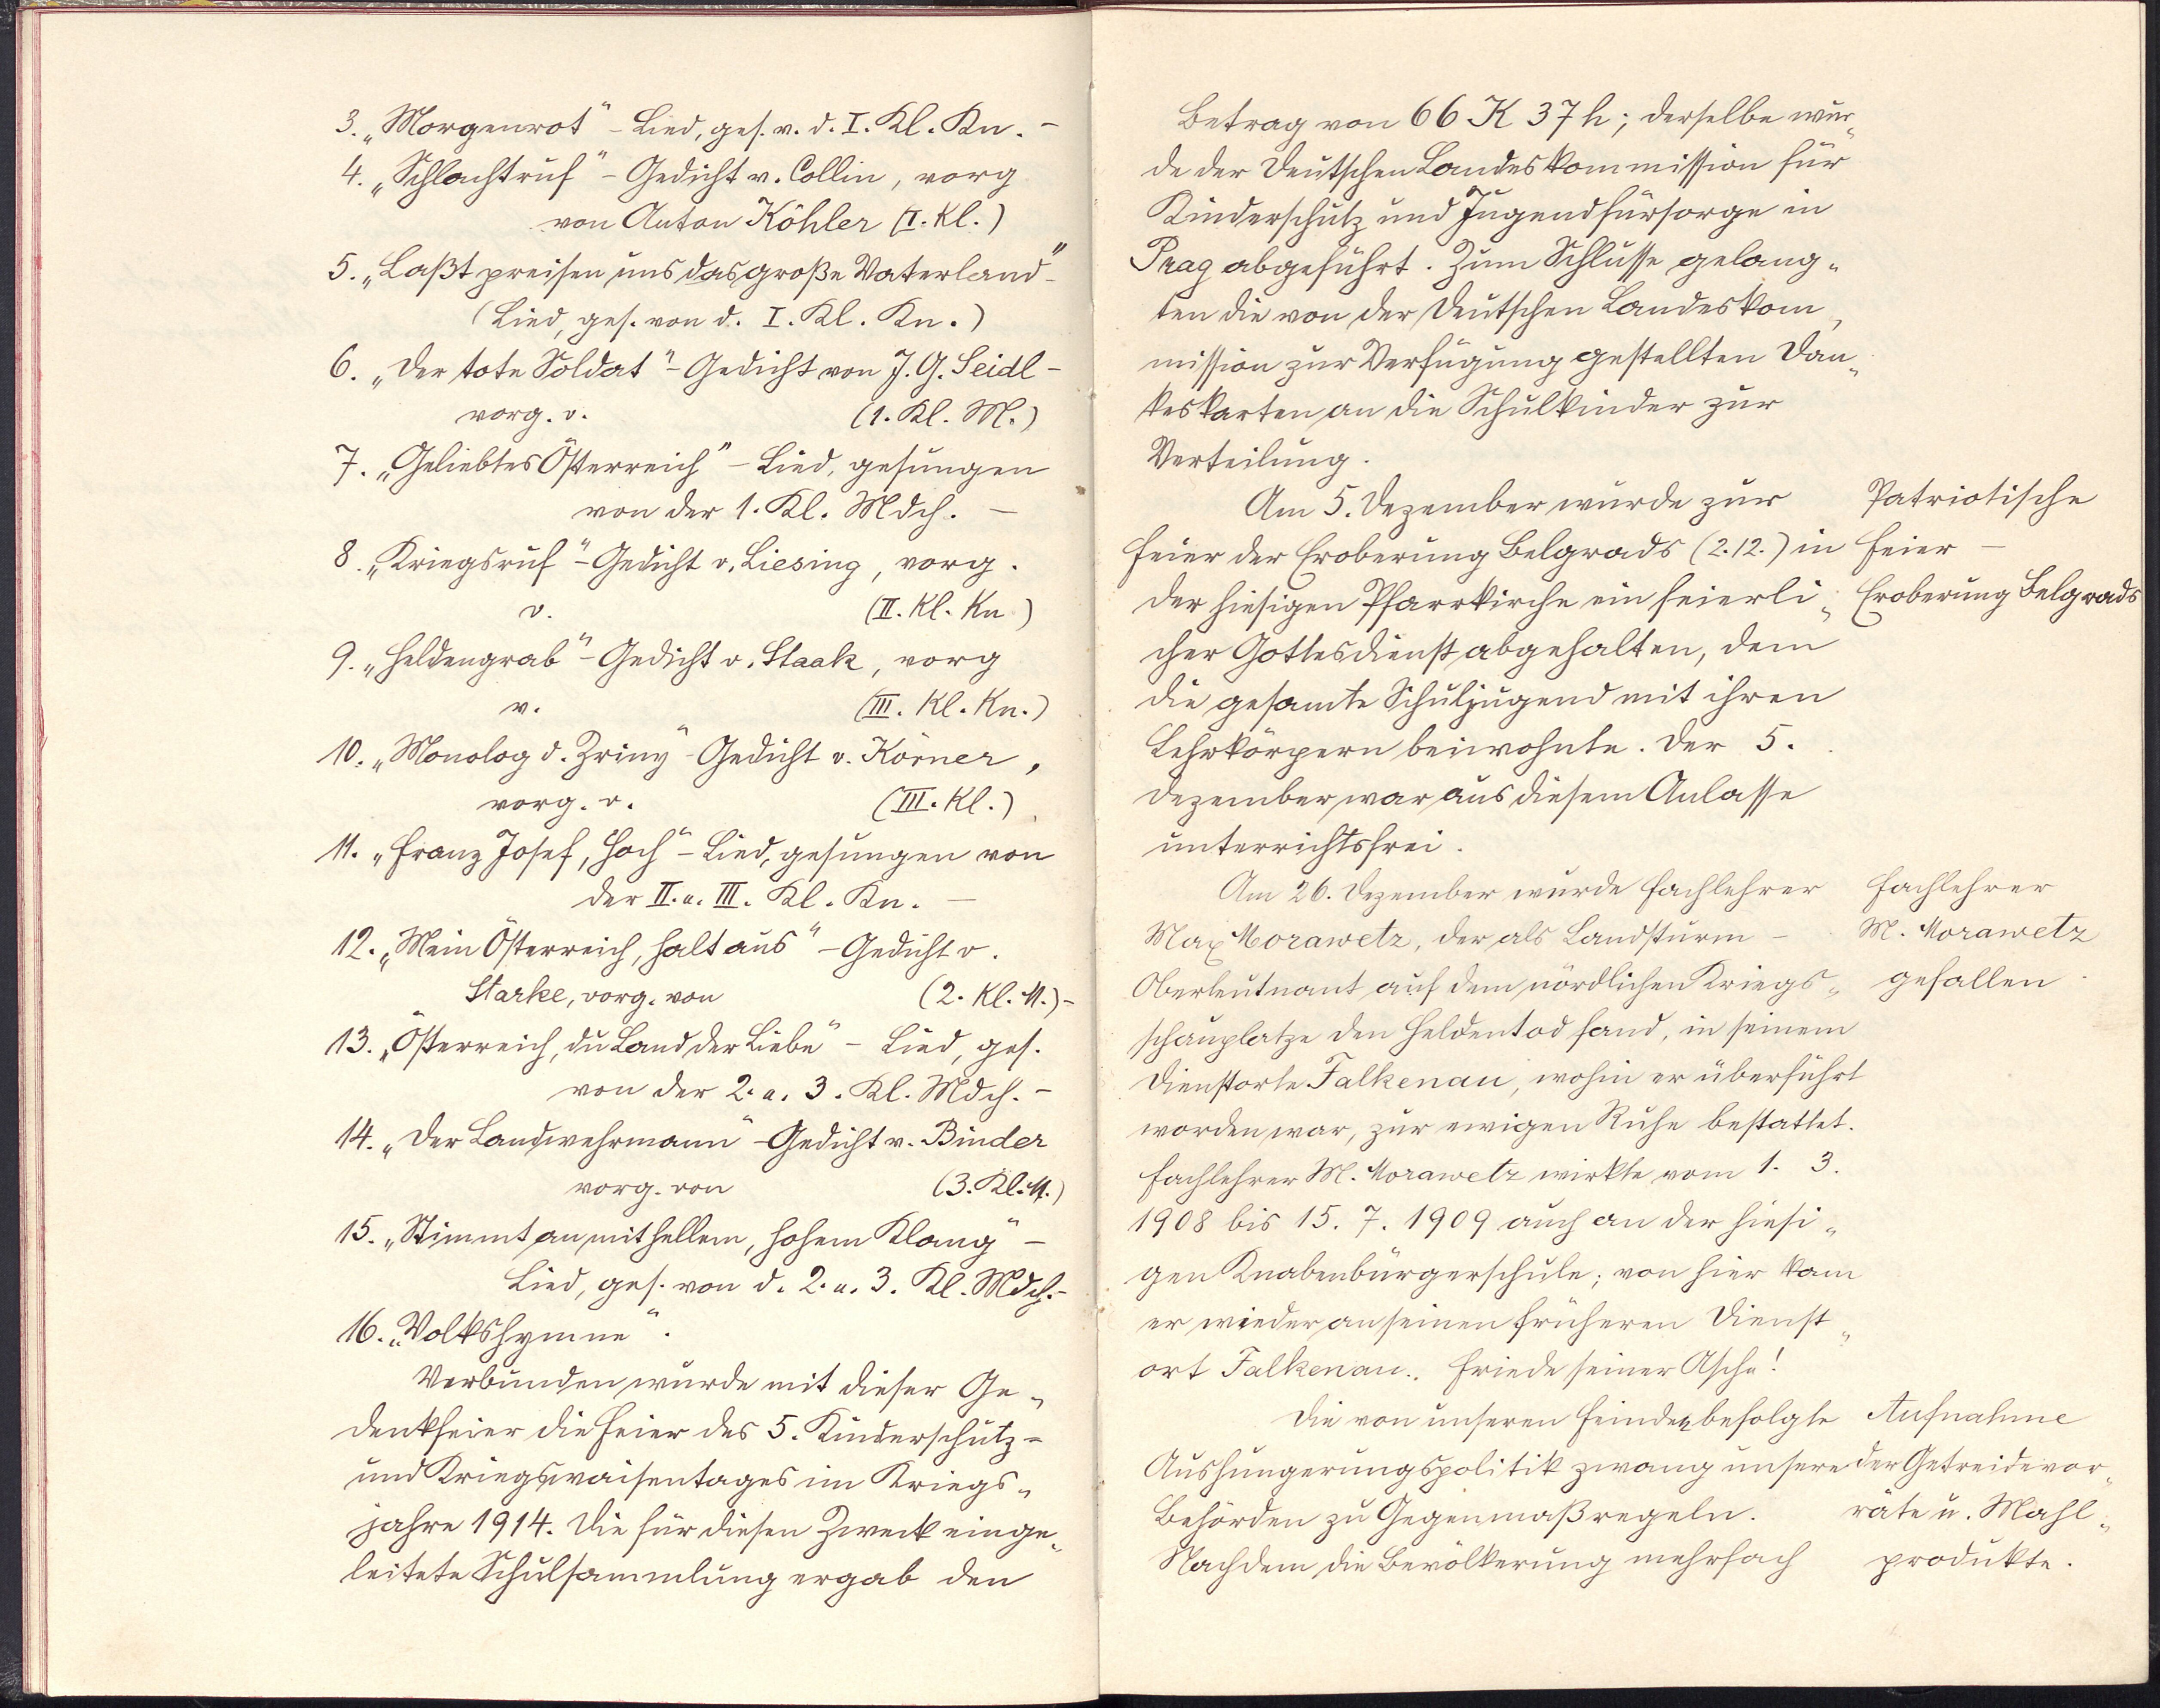 3. „Morgenrot“ – Lied, ges. v. d. I. Kl. Kn. –
4. „Schlachtruf“ – Gedicht v. Collin, vorg
von Anton Köhler (I. Kl.)
5. „Laßt preisen uns das große Vaterland“ –
(Lied, ges. von d. I. Kl. Kn.)
6. „Der tote Soldat“ – Gedicht von J. G. Seidl –
vorg. v. (1. Kl. M.)
7. „Geliebtes Österreich“ – Lied, gesungen
von der 1. Kl. Mdch. –
8. „Kriegsruf“ – Gedicht v. Liesing, vorg.
v. (II. Kl. Kn)
9. „Heldengrab“ – Gedicht v. Staak, vorg
v. (III. Kl. Kn.)
10. „Monolog d. Zriny“ – Gedicht v. Körner,
vorg. v. (III. Kl.)
11. „Franz Josef, hoch“ – Lied, gesungen von
der II. u. III. Kl. Kn. –
12. „Mein Österreich, halt aus“ – Gedicht v.
Starke, vorg. von (2. Kl. M.) –
13. „Österreich, du Land der Liebe“ – Lied, ges.
von der 2. u. 3. Kl. Mdch. –
14. „Der Landwehrmann“ – Gedicht v. Binder
vorg. von (3. Kl. M.)
15. „Stimmt an mit hellem, hohem Klang“ –
Lied, ges. von d. 2. u. 3. Kl. Mdch. –
16. „Volkshymne“.
Verbunden wurde mit dieser Ge-
denkfeier die Feier des 5. Kinderschutz-
und Kriegswaisentages im Kriegs-
jahre 1914. Die für diesen Zweck einge-
leitete Schulsammlung ergab den
Betrag von 66 K 37 h; derselbe wur-
de der Deutschen Landeskommission für
Kinderschutz und Jugendfürsorge in
Prag abgeführt. Zum Schlusse gelang-
ten die von der Deutschen Landeskom-
mission zur Verfügung gestellten Dan-
keskarten an die Schulkinder zur
Verteilung.
Am 5. Dezember wurde zur
Feier der Eroberung Belgrads (2.12.) in
der hiesigen Pfarrkirche ein feierli-
cher Gottesdienst abgehalten, dem
die gesamte Schuljugend mit ihren
Lehrkörpern beiwohnte. Der 5.
Dezember war aus diesem Anlasse
unterrichtsfrei.
Patriotische
Feier –
Eroberung Belgrads
Am 26. Dezember wurde Fachlehrer
Max Morawetz, der als Landsturm –
Oberleutnant auf dem nördlichen Kriegs-
schauplatze den Heldentod fand, in seinem
Dienstorte Falkenau, wohin er überführt
worden war, zur ewigen Ruhe bestattet.
Fachlehrer M. Morawetz wirkte vom 1. 3.
1908 bis 15. 7. 1909 auch an der hiesi-
gen Knabenbürgerschule; von hier kam
er wieder an seinen früheren Dienst-
ort Falkenau. Friede seiner Asche!
Fachlehrer
M. Morawetz
gefallen
Die von unseren Feinden befolgte
Aushungerungspolitik zwang unsere
Behörden zu Gegenmaßregeln.
Nachdem die Bevölkerung mehrfach
Aufnahme
der Getreidevor-
räte u. Mahl-
produkte.